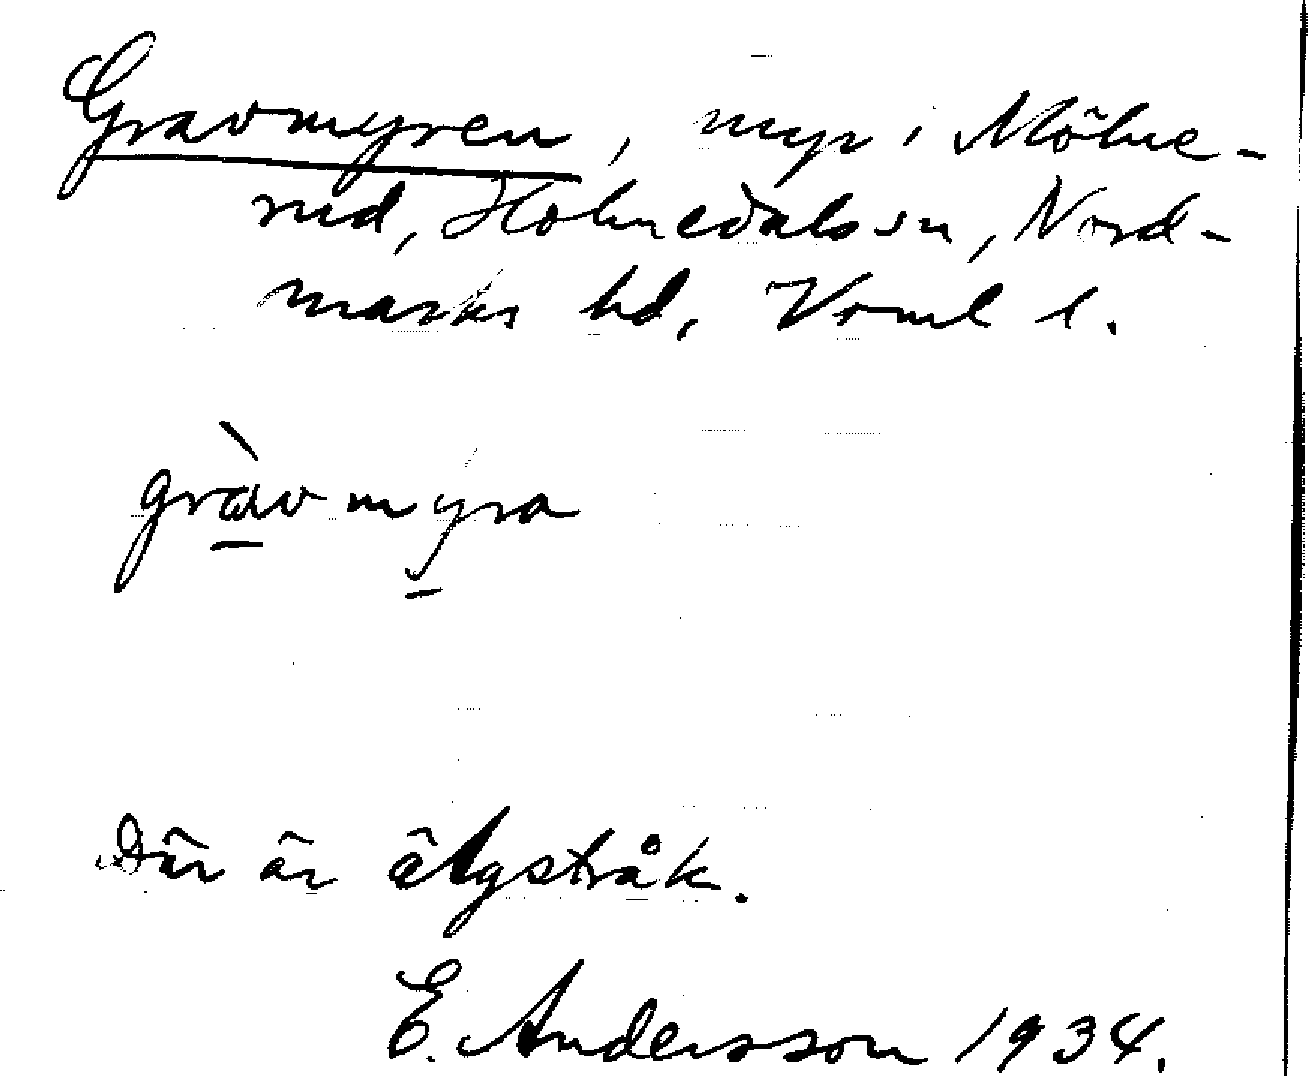 Gravmyren, myr i Mölne-
rud, Holmedals sn, Nord-
marks hd, Vrml l.
gràvmýra
Där är älgstråk.
E. Andersson 1934.